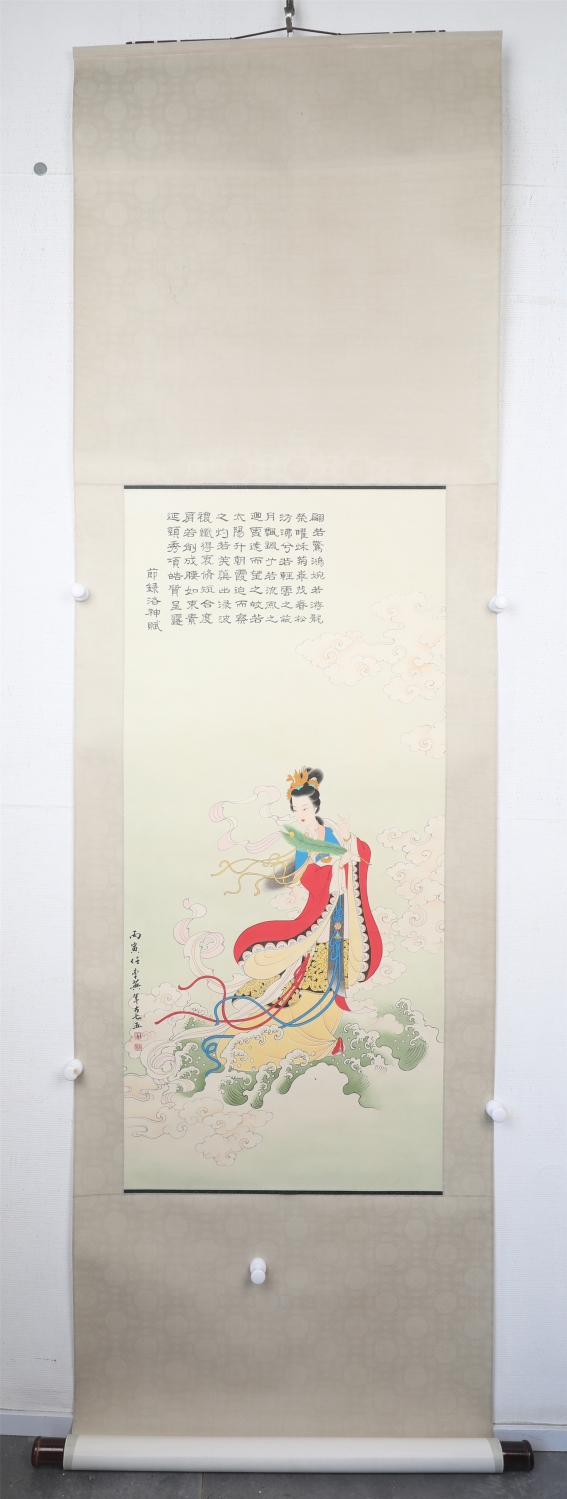 翩若驚鴻婉若游龍
榮曜秋菊華茂春松
仿沸兮若輕雲之蔽
月飄飄兮若流風之
迴雪遠而望之皎若
太陽升朝霞迫而察
之灼若芙蕖出淥波
襛纖得衷修短合度
肩若削成腰如束素
延頸秀項皓質呈露
節錄洛神賦
丙寅任率英年方七五